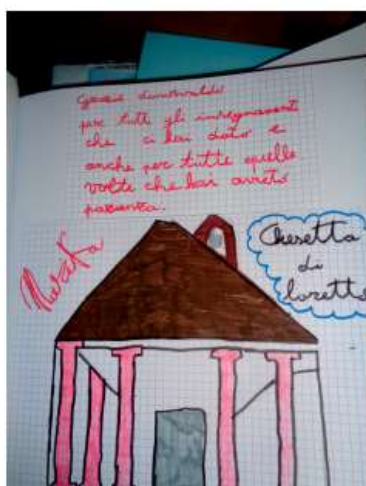 Grazie
per tutti gli insegnamenti
che ci hai dato e
anche per tutte quelle
volte che hai avuto
pazienza.
Chiesetta
di
loretto